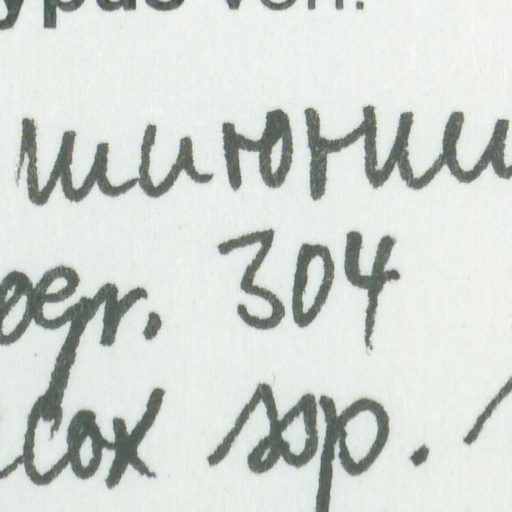 ypus von:
шиюни
pegr. 304
cox ssp.